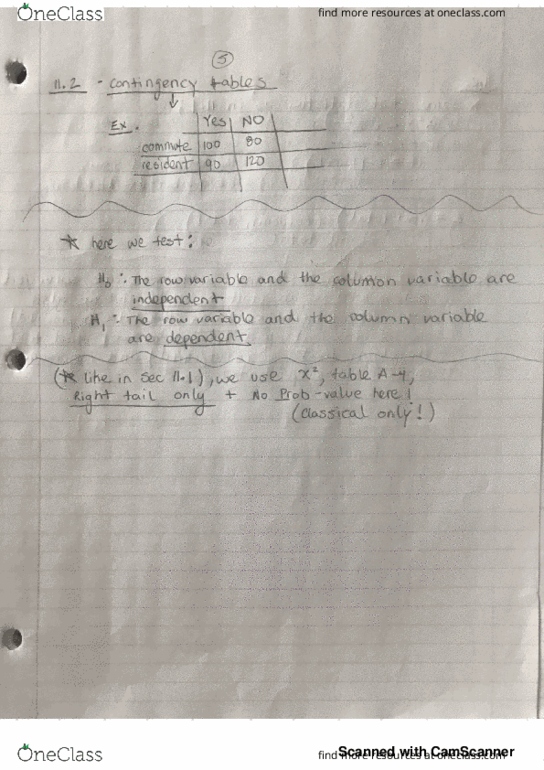 OneClass
find more resources at oneclass.com
5
11.2 - contingency tables
Ex. Yes NO
commute 100 80
resident 90 120
* here we test:
H₀: The row variable and the column variable are
independent
H₁: The row variable and the column variable
are dependent.
(* like in sec 11.1), we use x², table A-4,
Right tail only + No Prob-value here!
(classical only!)
OneClass
find more resources at oneclass.com
Scanned with CamScanner